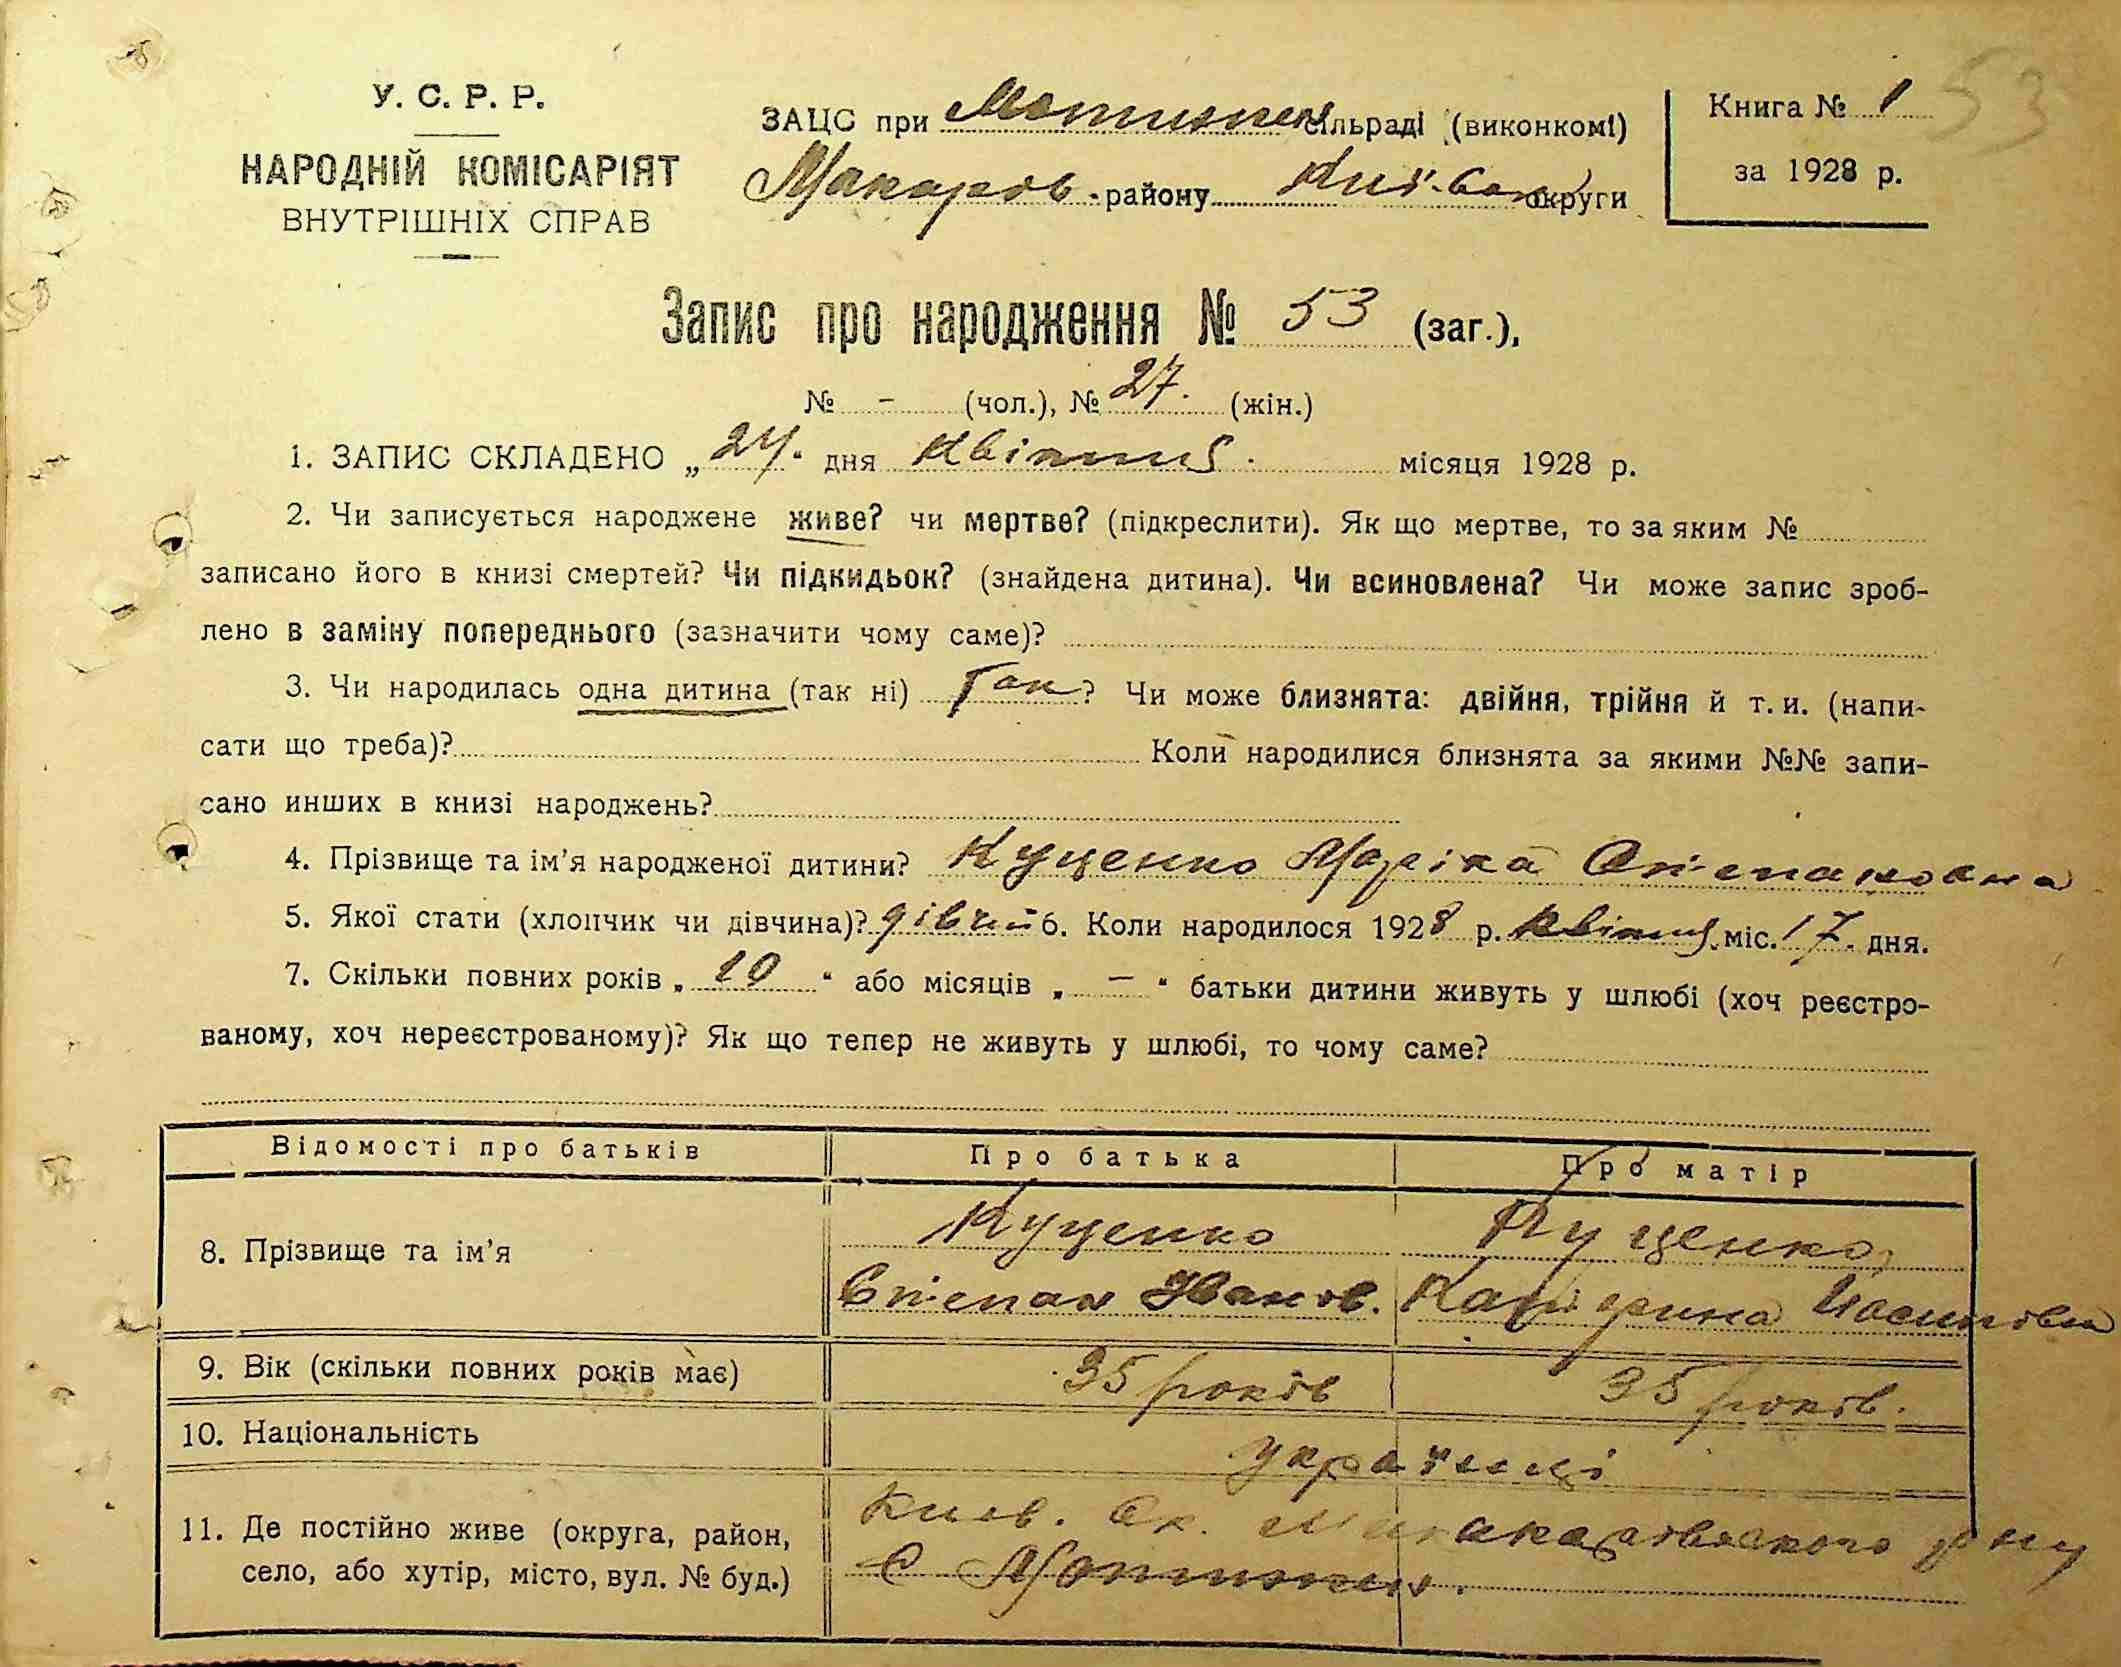 53
У. С. Р. Р.
НАРОДНІЙ КОМІСАРІЯТ
ВНУТРІШНІХ СПРАВ
ЗАЦС при Мотижин сільраді (виконкомі)
Макарів району Київськ округи
Книга № 1
за 1928 р.
Запис про народження № 53 (заг.),
№ - (чол.), № 27. (жін.)
1. ЗАПИС СКЛАДЕНО „24." дня Квітня місяця 1928 р.
2. Чи записується народжене живе? чи мертве? (підкреслити). Як що мертве, то за яким №
записано його в книзі смертей? Чи підкидьок? (знайдена дитина). Чи всиновлена? Чи може запис зроб-
лено в заміну попереднього (зазначити чому саме)?
3. Чи народилась одна дитина (так ні) Так? Чи може близнята: двійня, трійня й т. и. (напи-
сати що треба)? Коли народилися близнята за якими №№ запи-
сано инших в книзі народжень?
4. Прізвище та ім'я народженої дитини? Куценко Марія Степановна
5. Якої стати (хлопчик чи дівчина)? дівчин 6. Коли народилося 1928 р. квітня міс. 17. дня.
7. Скільки повних років „10" або місяців „—" батьки дитини живуть у шлюбі (хоч реєстро-
ваному, хоч нереєстрованому)? Як що тепер не живуть у шлюбі, то чому саме?
Відомості про батьків Про батька Про матір
8. Прізвище та ім'я Куценко Степан Іванов. Куценко Катерина Йосипівна
9. Вік (скільки повних років має) 35 років 35 років.
10. Національність українці
11. Де постійно живе (округа, район, село, або хутір, місто, вул. № буд.) Київ. Ок. Макарівського р-ну
с Мотижин.